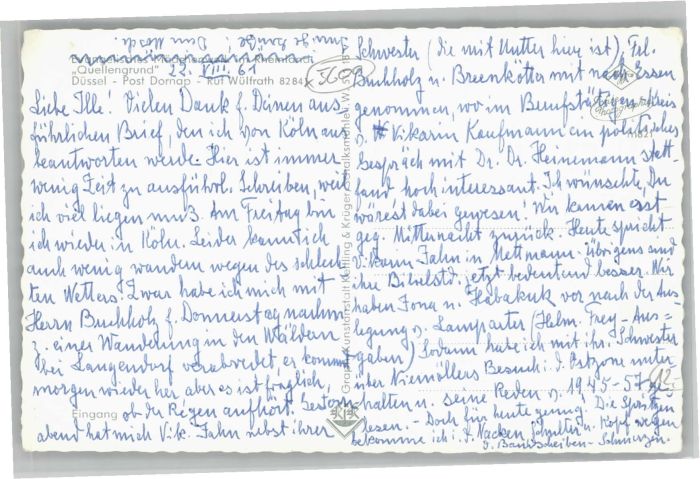 Evangelisches Mädchen
Rheinland
"Quellengrund" 22. VIII. 61
Düssel - Post Dornap - Ruf Wülfrath 8284
Liebe Ille. Vielen Dank f. Deinen aus-
führlichen Brief, den ich von Köln aus
beantworten werde. Hier ist immer
wenig Zeit zu ausführl. Schreiben, weil
ich viel liegen muß. Am Freitag bin
ich wieder in Köln. Leider kann ich
auch wenig wandern wegen des schlech-
ten Wetters. Zwar habe ich mich mit
Herrn Buchholz f. Donnerstag nachm.
z. einer Wanderung in den Wäldern
bei Langendorf verabredet, er kommt
morgen wieder her, aber es ist fraglich,
ob der Regen aufhört. Gestern
Eingang
abend hat mich Vik. Jahn nebst ihrer
Schwester (die mit Mutter hier ist), Frl.
Buchholz u. Breenkötter mit nach Essen
genommen, wo im Berufstätigenkreis
v. Vikarin Kaufmann ein politisches
Gespräch mit Dr. Dr. Heinemann statt-
fand, hochinteressant. Ich wünschte, Du
wärest dabei gewesen! Wir kamen erst
geg. Mitternacht zurück. Heute spricht
Vikarin Jahn in Mettmann. Übrigens sind
ihre Bibelstd. jetzt bedeutend besser. Wir
haben Jona u. Habakuk vor nach der Aus-
legung v. Lamparter (Helm. Frey-Aus=
gaben) Sodann habe ich mit ihr. Schwester
über Niemöllers Besuch i. d. Ostzone unter-
halten u. seine Reden v. 1945-57 z.
lesen. - Doch für heute genug! Die Spritzen
bekomme ich i. d. Nacken, Schulter u. Kopf wegen
d. Bandscheiben-Schmerzen.
Innige Grüße! Dein